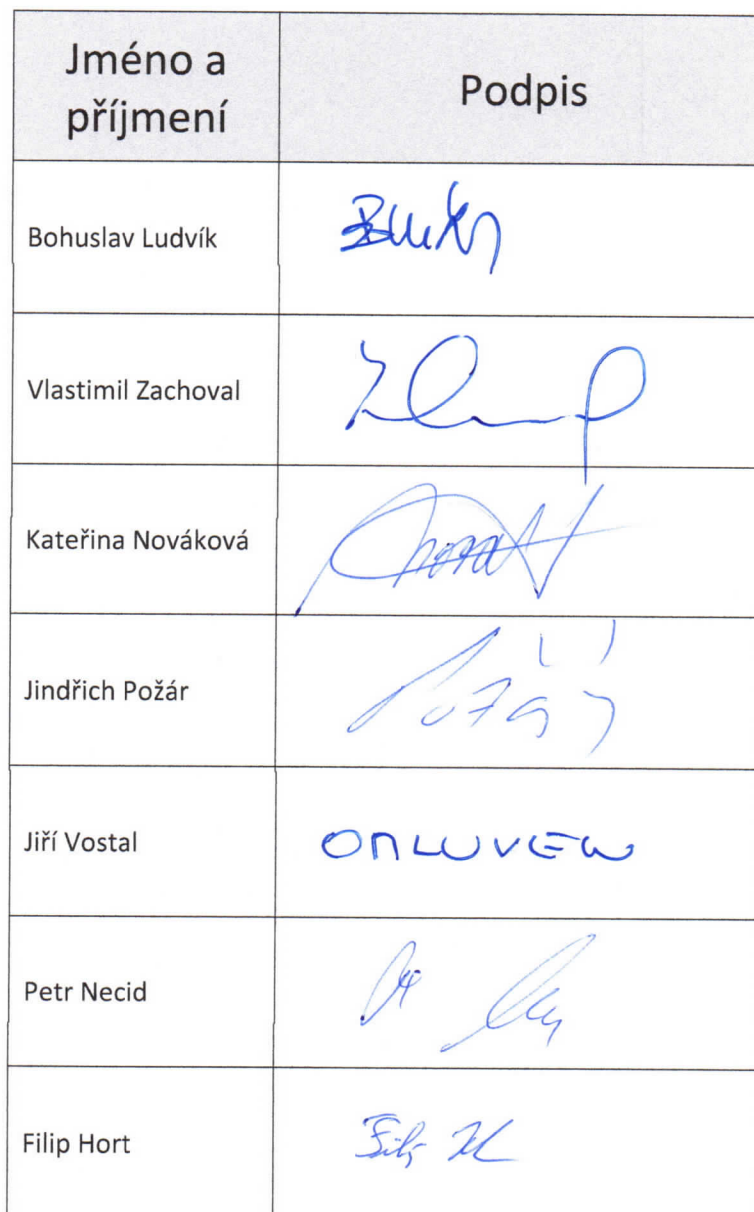 Jméno a
příjmení
Podpis
Bohuslav Ludvík
Vlastimil Zachoval
Kateřina Nováková
Jindřich Požár
Požár
Jiří Vostal
OMLUVEN
Petr Necid
Filip Hort